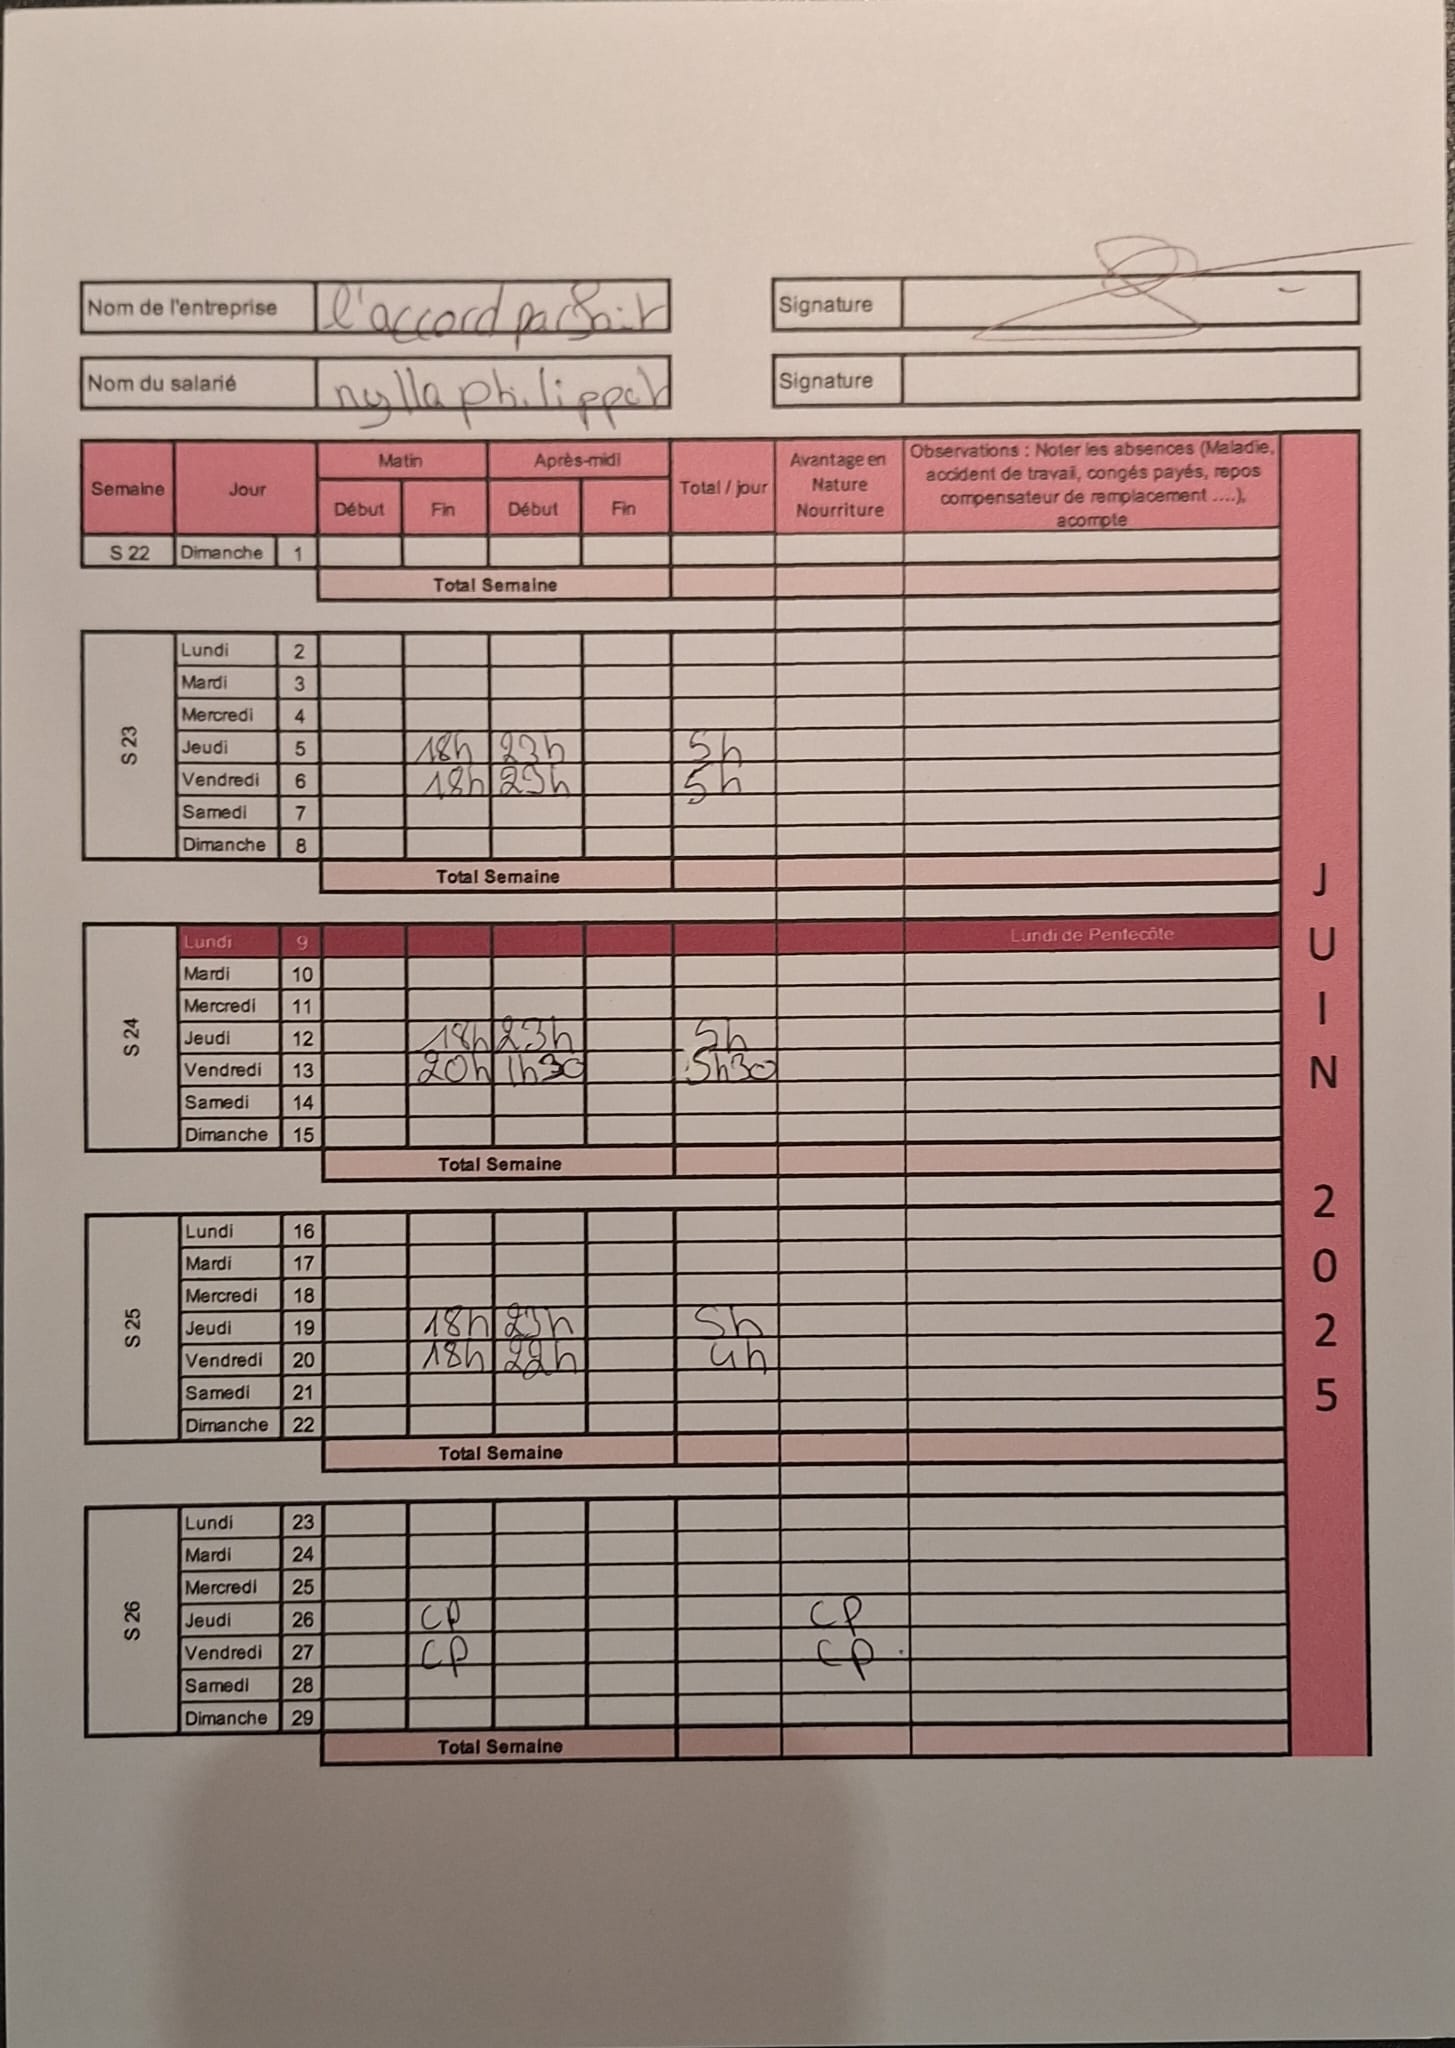 Nom de l'entreprise l'accord parfait Signature
Nom du salarié nylla philippot Signature
Semaine Jour Matin Après-midi Total / jour Avantage en Nature Nourriture Observations : Noter les absences (Maladie, accident de travail, congés payés, repos compensateur de remplacement ....), acompte
Début Fin Début Fin
S 22 Dimanche 1
Total Semaine
S 23
Lundi 2
Mardi 3
Mercredi 4
Jeudi 5 18h 23h 5h
Vendredi 6 18h 23h 5h
Samedi 7
Dimanche 8
Total Semaine
S 24
Lundi 9 Lundi de Pentecôte
Mardi 10
Mercredi 11
Jeudi 12 18h 23h 5h
Vendredi 13 20h 1h30 5h30
Samedi 14
Dimanche 15
Total Semaine
S 25
Lundi 16
Mardi 17
Mercredi 18
Jeudi 19 18h 23h 5h
Vendredi 20 18h 22h 4h
Samedi 21
Dimanche 22
Total Semaine
S 26
Lundi 23
Mardi 24
Mercredi 25
Jeudi 26 CP CP
Vendredi 27 CP CP
Samedi 28
Dimanche 29
Total Semaine
JUIN 2025